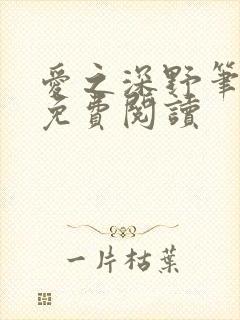 愛之深野筆
免費閱讀
一片枯葉